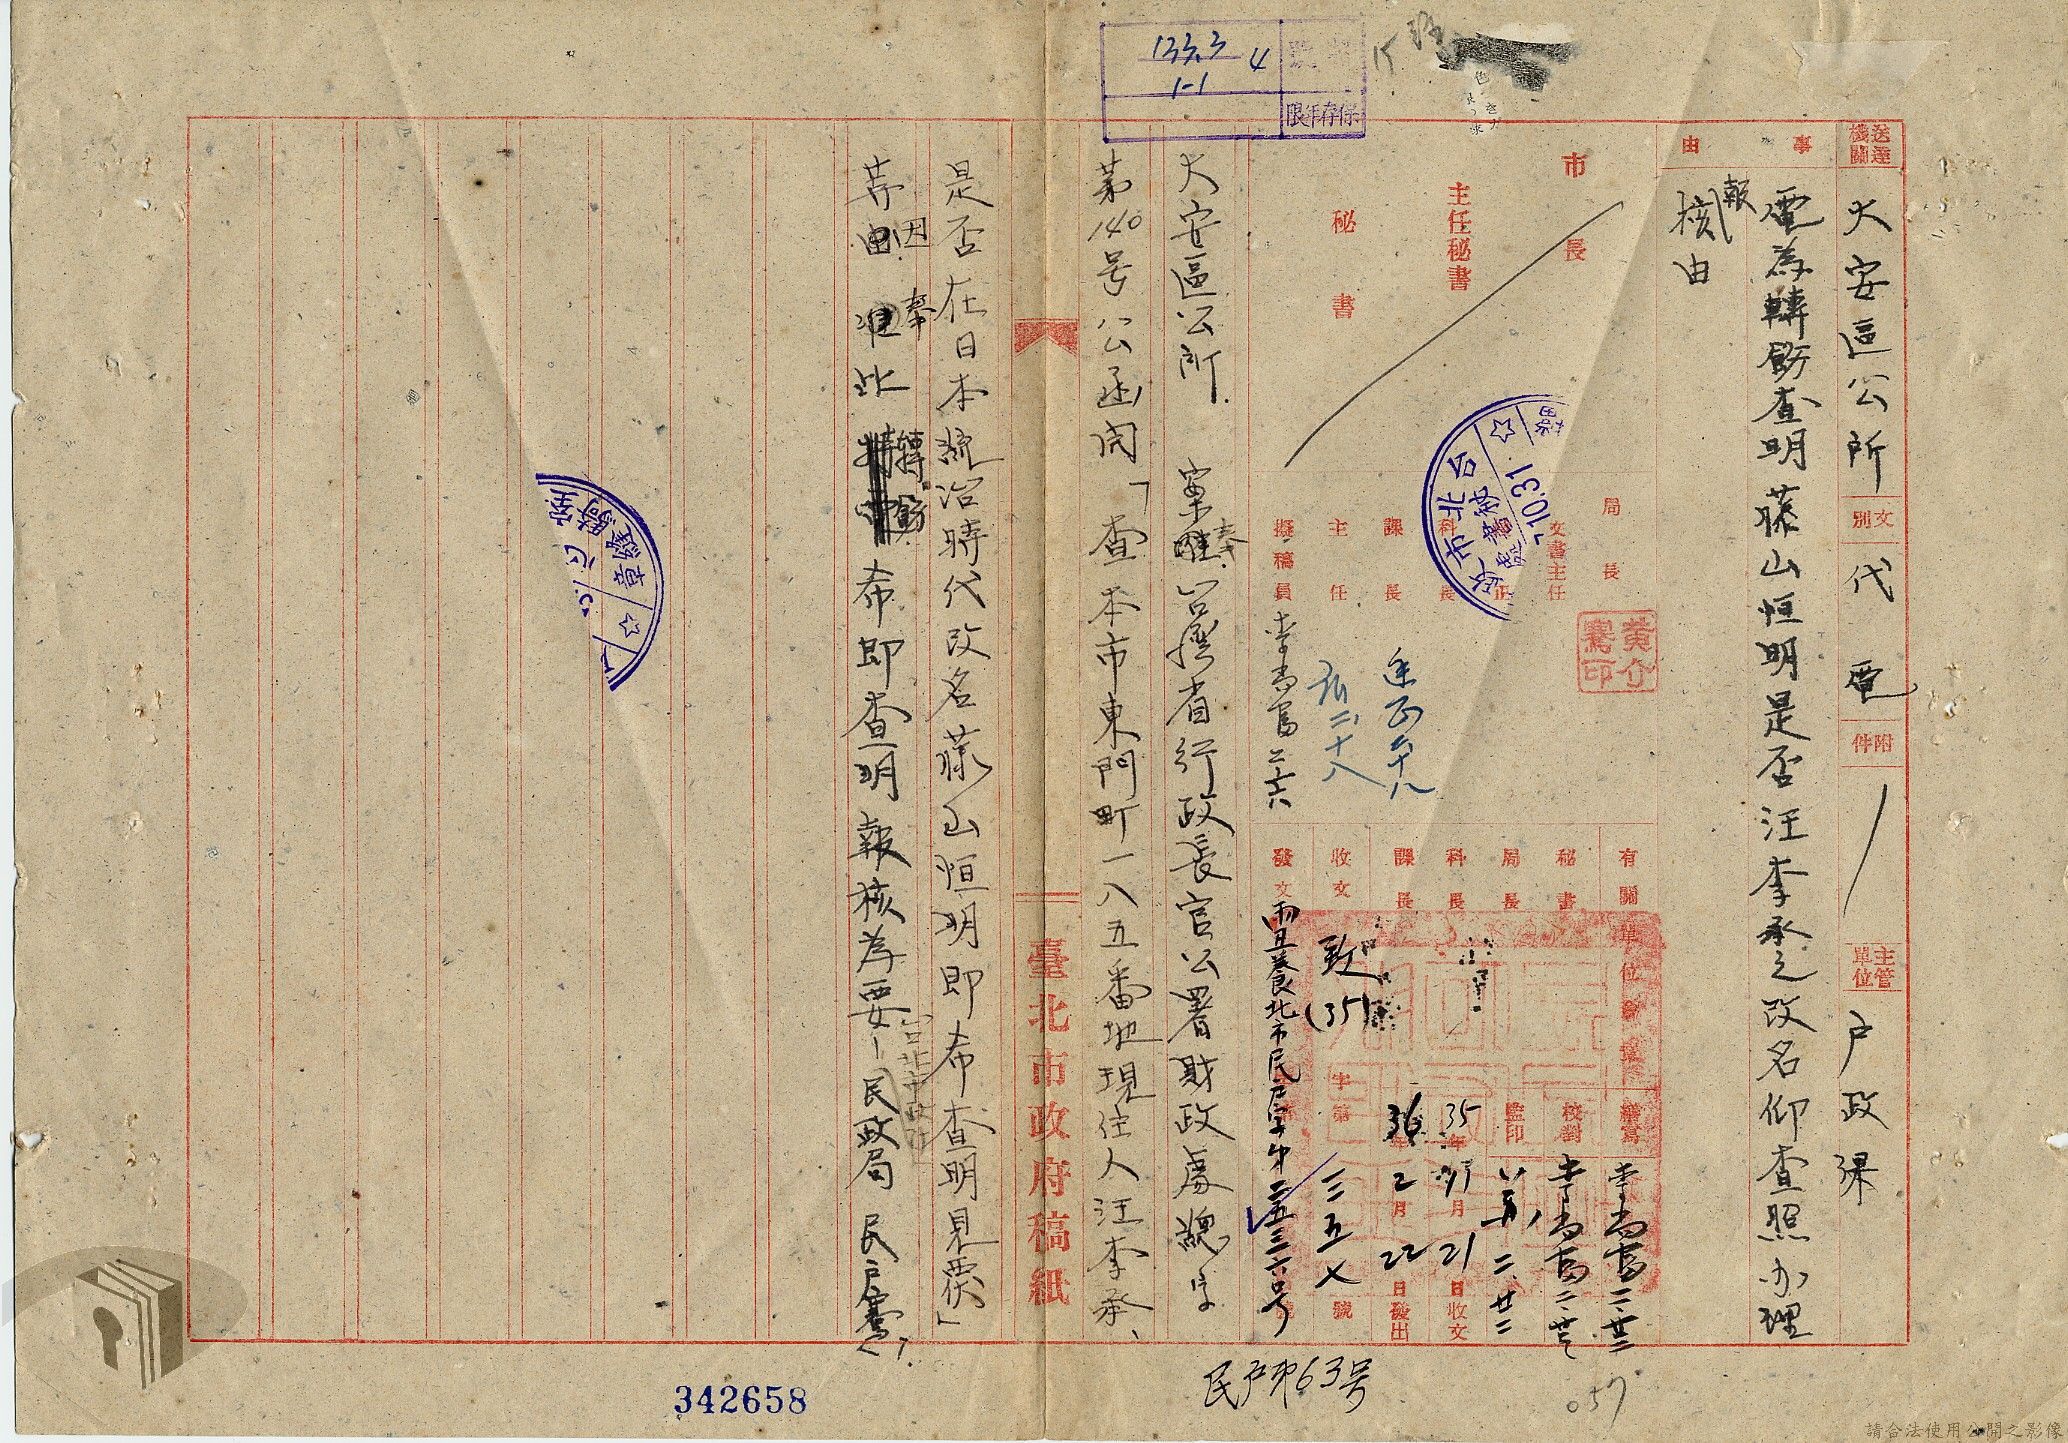 133.3
1-1
4
保存年限
送達機關
大安區公所
文別
代電
附件
主管單位
戶政課
事由
電為轉飭查明藤山恒明是否汪李承之改名仰查照办理
報核由
市長
主任秘書
秘書
局長
文書主任
科長
課長
主任
擬稿員
李尚富
黃介騫印
台北市政
10.31
有關單位會章
秘書
局長
科長
課長
繕寫
李尚富
校對
李尚富
監印
35年
月21日收文
36年2月22日發出
收文
致(35)
字第三五七號
發文
丑養北市民戶字第二五三六号
大安區公所 案奉台灣省行政長官公署財政處總字
第140号公函開「查本市東門町一八五番地現住人汪李承、
是否在日本統治時代改名藤山恒明即希查明見覆」
等因奉此轉飭希即查明報核為要－民政局民戶
臺北市政府稿紙
騎縫章
民戶第63号
057
342658
請合法使用公開之影像